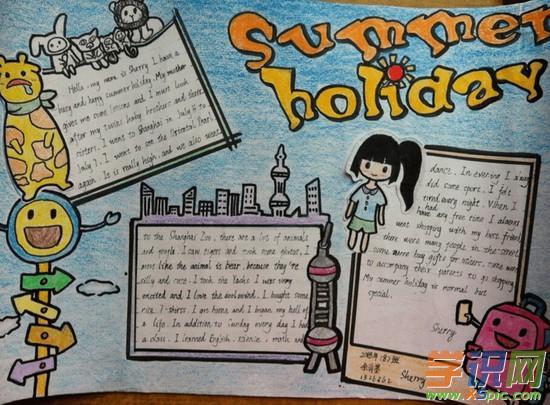 Summer
holiday
Hello, my name is Sherry. I have a
busy and happy summer holiday. My mother
gives me some lessons and I must look
after my twins baby brothers and three
sisters. I went to Shanghai in July 8 to
July 9. I went to see the Oriental Pearl
again. It is really high, and we also went
to the Shanghai Zoo, there are a lots of animals
and people. I saw tigers and took some photos. I
most like the animal is bear, because they're
silly and cute. I took the
excited and I love the I bought some
nice T-shirts. I am home and I began my hell of
a life. In addition to Sunday every day I had
a class. I learned English, science, math and
dance. In evening I always
did some spore. I felt
tired every night. When I
have any free time I always
went shopping with my best friend
there were many people in the street
some were buy gifts for others, some were
to accompany their parents to go shopping
My summer holiday is normal but
special.
Sherry
Sherry
学识网
www.xspic.com